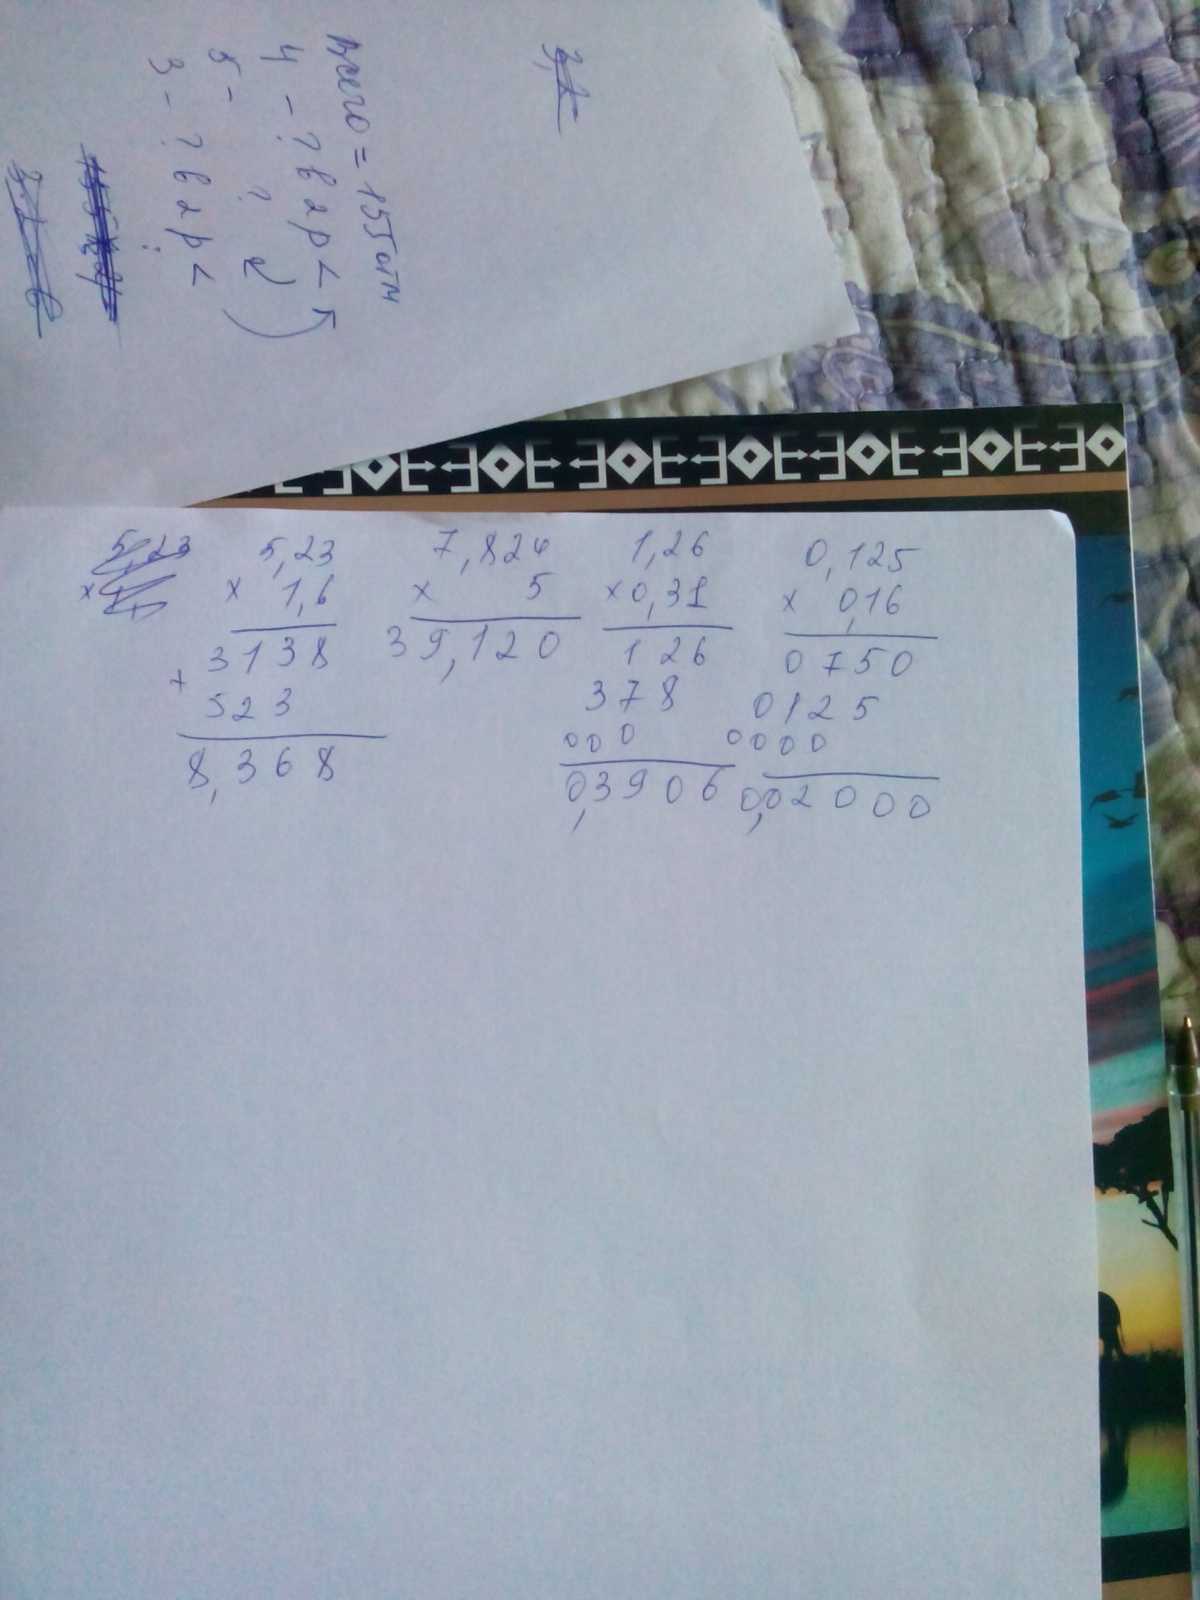 всего = 155 отм
4 - ? в 2 р <
5 - ?
3 - ? в 2 р <
5,23
× 1,6
3138
+
523
8,368
7,824
× 5
39,120
1,26
×0,31
126
378
000
0,3906
0,125
× 0,16
0750
0125
0000
0,02000